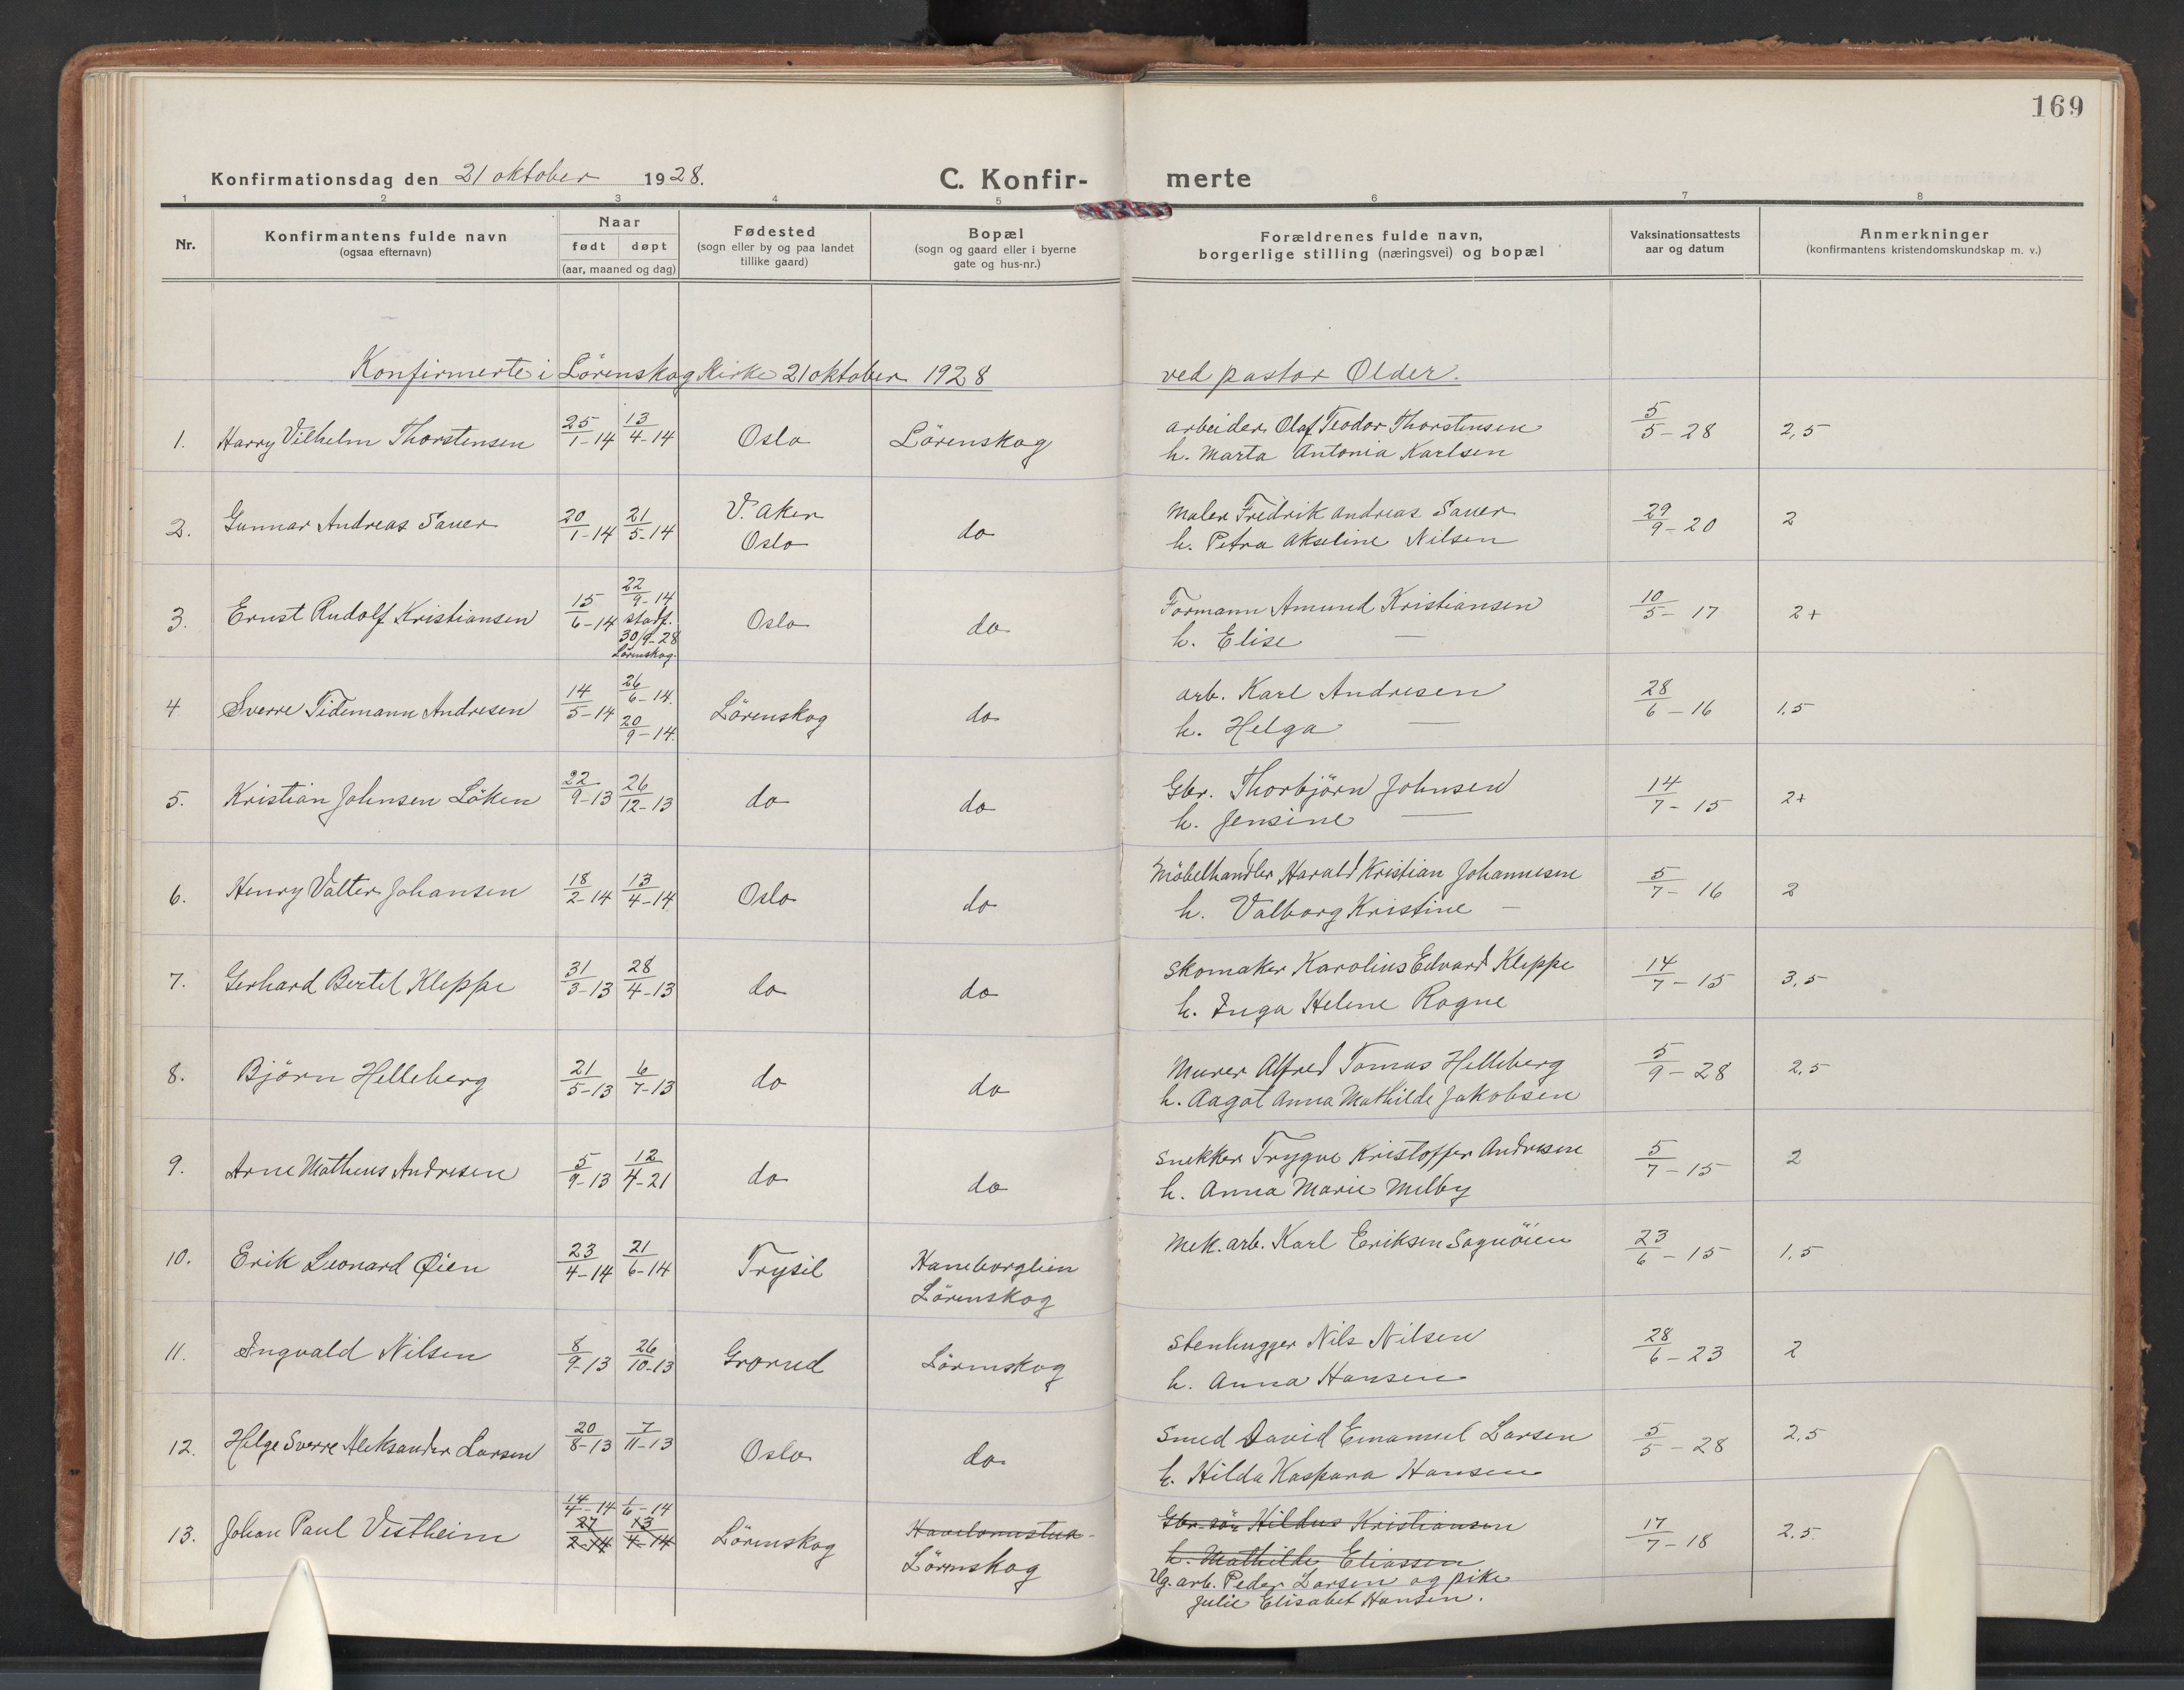 169
Konfirmationsdag den 21 oktober 1928.
C. Konfir-merte
1 2 3 4 5 6 7 8
Nr.
Konfirmantens fulde navn
(ogsaa efternavn)
Naar
født døpt
(aar, maaned og dag)
Fødested
(sogn eller by og paa landet
tillike gaard)
Bopæl
(sogn og gaard eller i byerne
gate og hus-nr.)
Forældrenes fulde navn,
borgerlige stilling (næringsvei) og bopæl
Vaksinationsattests
aar og datum
Anmerkninger
(konfirmantens kristendomskundskap m. v.)
Konfirmerte i Lörenskog Kirke 21 oktober 1928 ved pastor Older.
1. Harry Vilhelm Thorstensen 25/1-14 13/4-14 Oslo Lörenskog arbeider Olaf Teodor Thorstensen 5/5-28 2,5
h. Marta Antonia Karlsen
2. Gunnar Andreas Sauer 20/1-14 21/5-14 V. Aker Oslo do Maler Fredrik Andreas Sauer 29/9-20 2
h. Petra Akseline Nilsen
3. Ernst Rudolf Kristiansen 15/6-14 22/9-14 Oslo do Formann Amund Kristiansen 10/5-17 2+
stadf.
30/9-28
Lörenskog.
h. Elise —
4 Sverre Tidemann Andresen 14/5-14 26/6-14. Lörenskog do arb. Karl Andresen 28/6-16 1,5
20/9-14.
h. Helga —
5. Kristian Johnsen Löken 22/9-13 26/12-13 do do Gbr. Thorbjörn Johnsen 14/7-15 2+
h. Jensine —
6. Henry Valter Johansen 18/2-14 13/4-14 Oslo do Möbelhandler Harald Kristian Johannesen 5/7-16 2
h. Valborg Kristine —
7. Gerhard Bertel Kleppe 31/3-13 28/4-13 do do Skomaker Karolius Edvard Kleppe 14/7-15 3,5
h. Inga Helene Rogne
8. Björn Helleberg 21/5-13 6/7-13 do do Murer Alfred Tomas Helleberg 5/9-28 2,5
h. Aagot Anna Mathilde Jakobsen
9. Arne Matheus Andresen 5/9-13 12/4-21 do do Snekker Trygve Kristoffer Andresen 5/7-15 2
h. Anna Marie Melby
10. Erik Leonard Øien 23/4-14 21/6-14 Trysil Haneborglien Mek. arb. Karl Eriksen Sagnöien 23/6-15 1,5
Lörenskog
11. Ingvald Nilsen 8/9-13 26/10-13 Grorud Lörenskog Stenhugger Nils Nilsen 28/6-23 2
h. Anna Hansen
12. Helge Sverre Aleksander Larsen 20/8-13 7/11-13 Oslo do. Smed David Emanuel Larsen 5/5-28 2,5
h. Hilda Kaspara Hansen
13. Johan Paul Vestheim 14/4-14 1/6-14 Lörenskog
27/2-14 13/4-14
Lörenskog
Gbr. sön Hildus Kristiansen 17/7-18 2,5.
h. Mathilde Eliassen
Ug. arb. Peder Larsen og pike
Julie Elisabet Hansen.